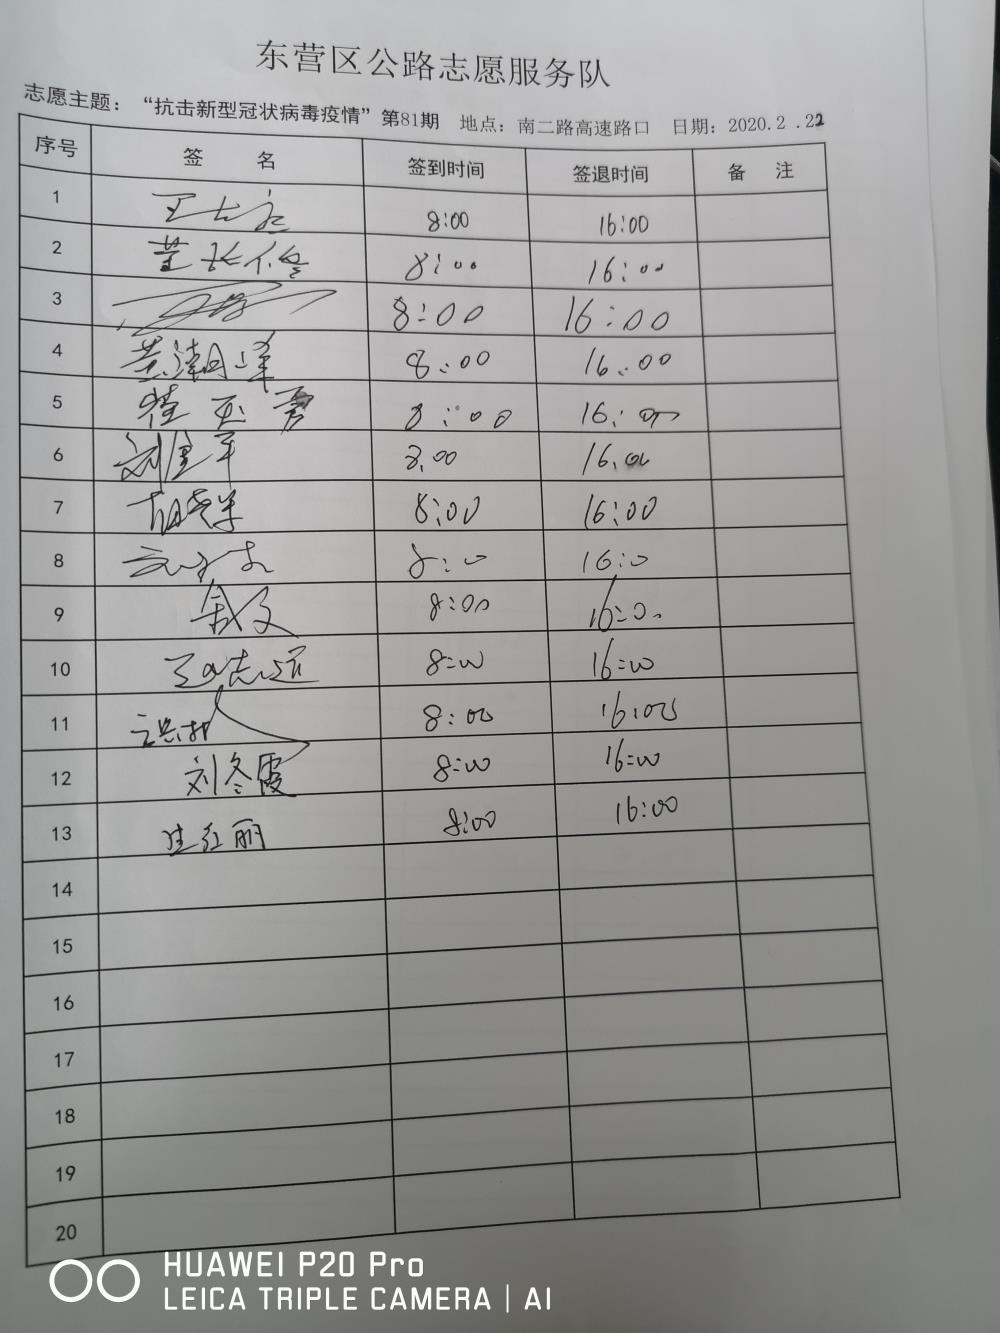 东营区公路志愿服务队
志愿主题：“抗击新型冠状病毒疫情”第81期 地点：南二路高速路口 日期：2020.2.22
序号 签 名 签到时间 签退时间 备 注
1 8:00 16:00
2 8:00 16:00
3 8:00 16:00
4 8:00 16:00
5 8:00 16:00
6 8:00 16:00
7 8:00 16:00
8 8:0 16:0
9 8:00 16:00
10 8:00 16:00
11 8:00 16:00
12 刘冬霞 8:00 16:00
13 红丽 8:00 16:00
14
15
16
17
18
19
20
HUAWEI P20 Pro
LEICA TRIPLE CAMERA | AI